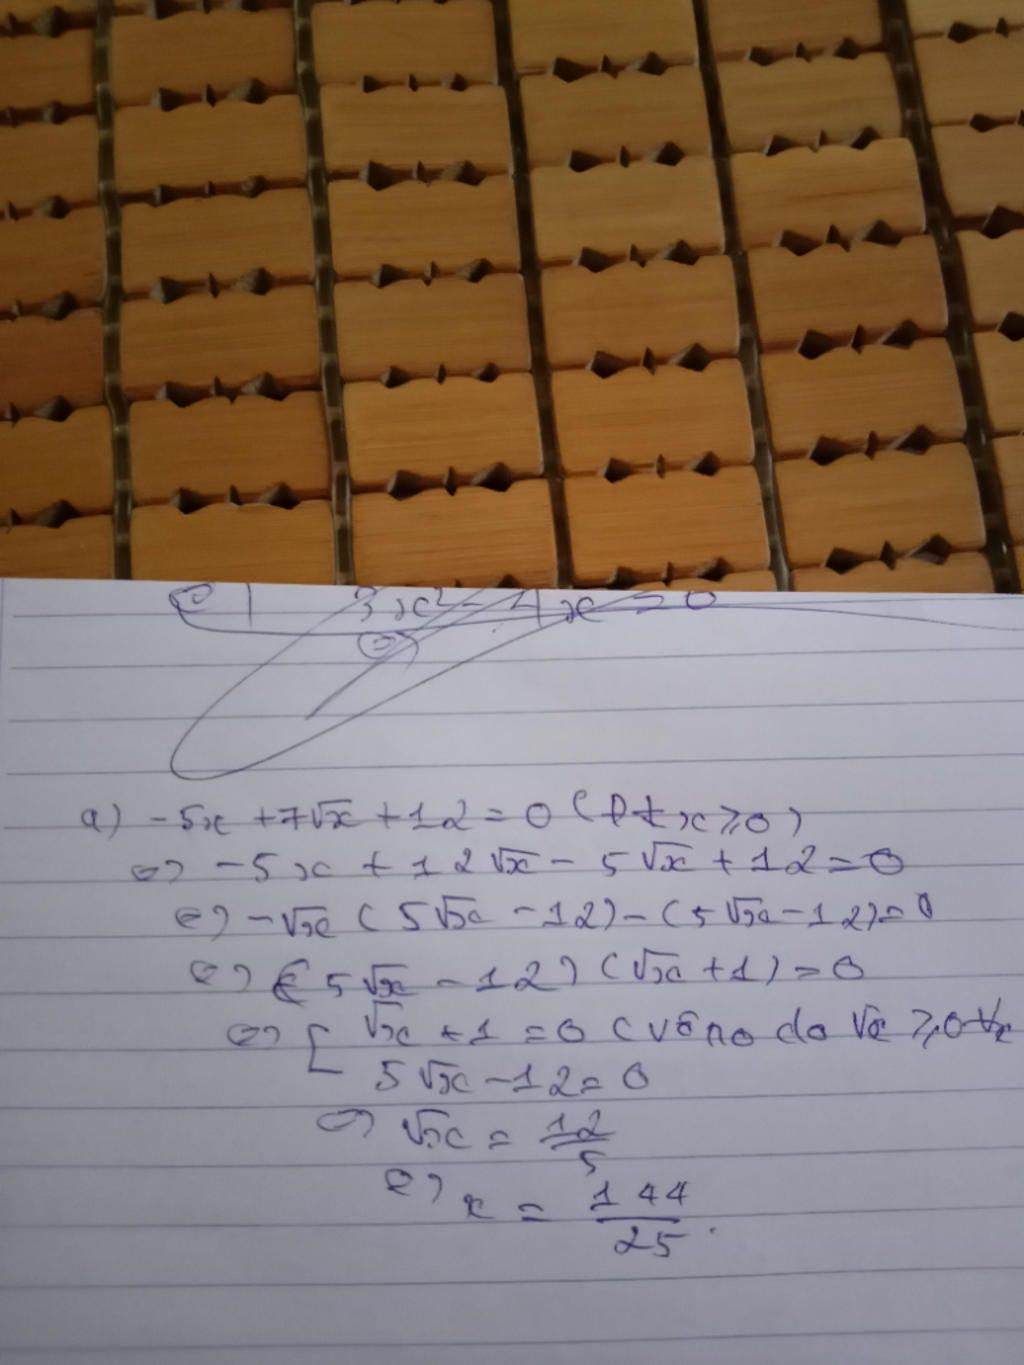 3x² - 4x = 0
a) -5x + 7√x + 12 = 0 (đk x ≥ 0)
<=> -5x + 12√x - 5√x + 12 = 0
<=> -√x (5√x - 12) - (5√x - 12) = 0
<=> (5√x - 12) (√x + 1) = 0
<=> [ √x + 1 = 0 (vô no do √x ≥ 0 ∀x
5√x - 12 = 0
<=> √x = 12/5
<=> x = 144/25.